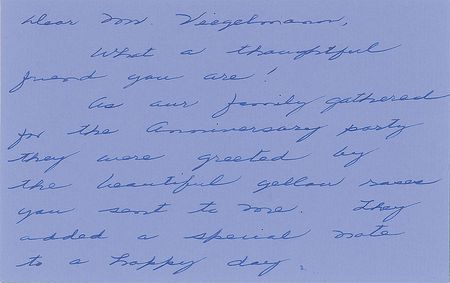 Dear Mr. Viegelmann,
What a thoughtful
friend you are!
As our family gathered
for the Anniversary party
they were greeted by
the beautiful yellow roses
you sent to me. They
added a special note
to a happy day.